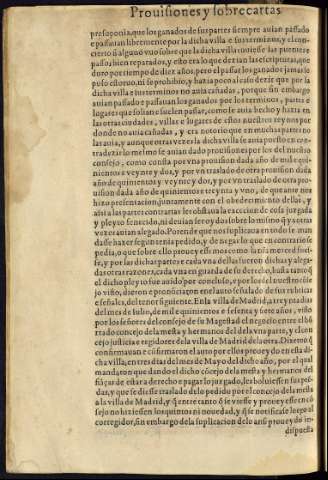 Prouisiones y sobrecartas
presaponia, que los ganados de sus partes siempre auian passado
e passauan libremente por la dicha villa e sus terminos, y el con-
cierto si alguno vuo sobre que la dicha villa tuuiesse las puentes e
passos bien reparados, y esto era lo que dezian las escripturas, que
duro por tiempo de diez años, pero el passar los ganados jamas lo
puso estoruo, ni se prohibio, y hazia poco al caso dezir que por la
dicha villa e sus terminos no auia cañadas, porque sin embargo
auian passado e passauan los ganados por los terminos, partes e
lugares que solian e suelen passar, como se auia hecho y hazia en
las otras ciudades, villas e lugares de estos nuestros reynos por
donde no auia cañadas, y era notorio que en muchas partes no
las auia, y aunque otra vez en la dicha villa se auia puesto en con-
tradezir lo mesmo se auian dado prouisiones por los del nuestro
consejo, como consta por vna prouision dada año de mil e qui-
nientos e veynte y dos, y por vn traslado de otra prouision dada
año de quinientos y veynte y dos, y por vn traslado de otra pro-
uision dada año de quinientos e treynta y vno, de que ante nos
hizo presentacion, juntamente con el obedecimiento dellas, y
assi a las partes contrarias les obstaua la excecion de cosa juzgada
y pleyto fenecido, ni deuian ser oydas sobre lo mismo que otras
vezes auian alegado. Porende que nos suplicaua en todo le man
dasse hazer segun tenia pedido, y denegar lo que en contrario se
pedia, o que sobre ello proueyessemos como la nuestra merced fues-
se, y por las dichas partes e cada vna dellas fueron dichas y alega-
das otras razones, cada vna en guarda de su derecho, hasta tanto que
el dicho pleyto fue auido por concluso, e por los del nuestro conse
jo visto, dieron e pronunciaron en el auto señalado de sus rubricas
e señales, del tenor siguiente. En la villa de Madrid, a treynta dias
del mes de Iulio, de mil e quinientos e sesenta y siete años, visto
por los señores del consejo de su Magestad el negocio entre el hon-
rrado concejo de la mesta y hermanos del de la vna parte, y el con
cejo justicia e regidores de la villa de Madrid de la otra. Dixeron que
confirmauan e confirmaron el auto por ellos proueydo en esta di-
cha villa, en tres dias del mes de Mayo del dicho año, por el qual
mandaron que dando el dicho concejo de la mesta y hermanos del
fianças de estar a derecho e pagar lo juzgado, les boluiessen sus pren-
das, y que se diesse traslado de lo pedido por el concejo de la mesta
a la villa de Madrid, y que entre tanto que se viesse y proueyesse en con
sejo no hiziessen los quintos ni nouedad, y que se notificasse lo pro al
corregidor, sin embargo de la suplicacion de lo ansi proueydo in-
dispuesta